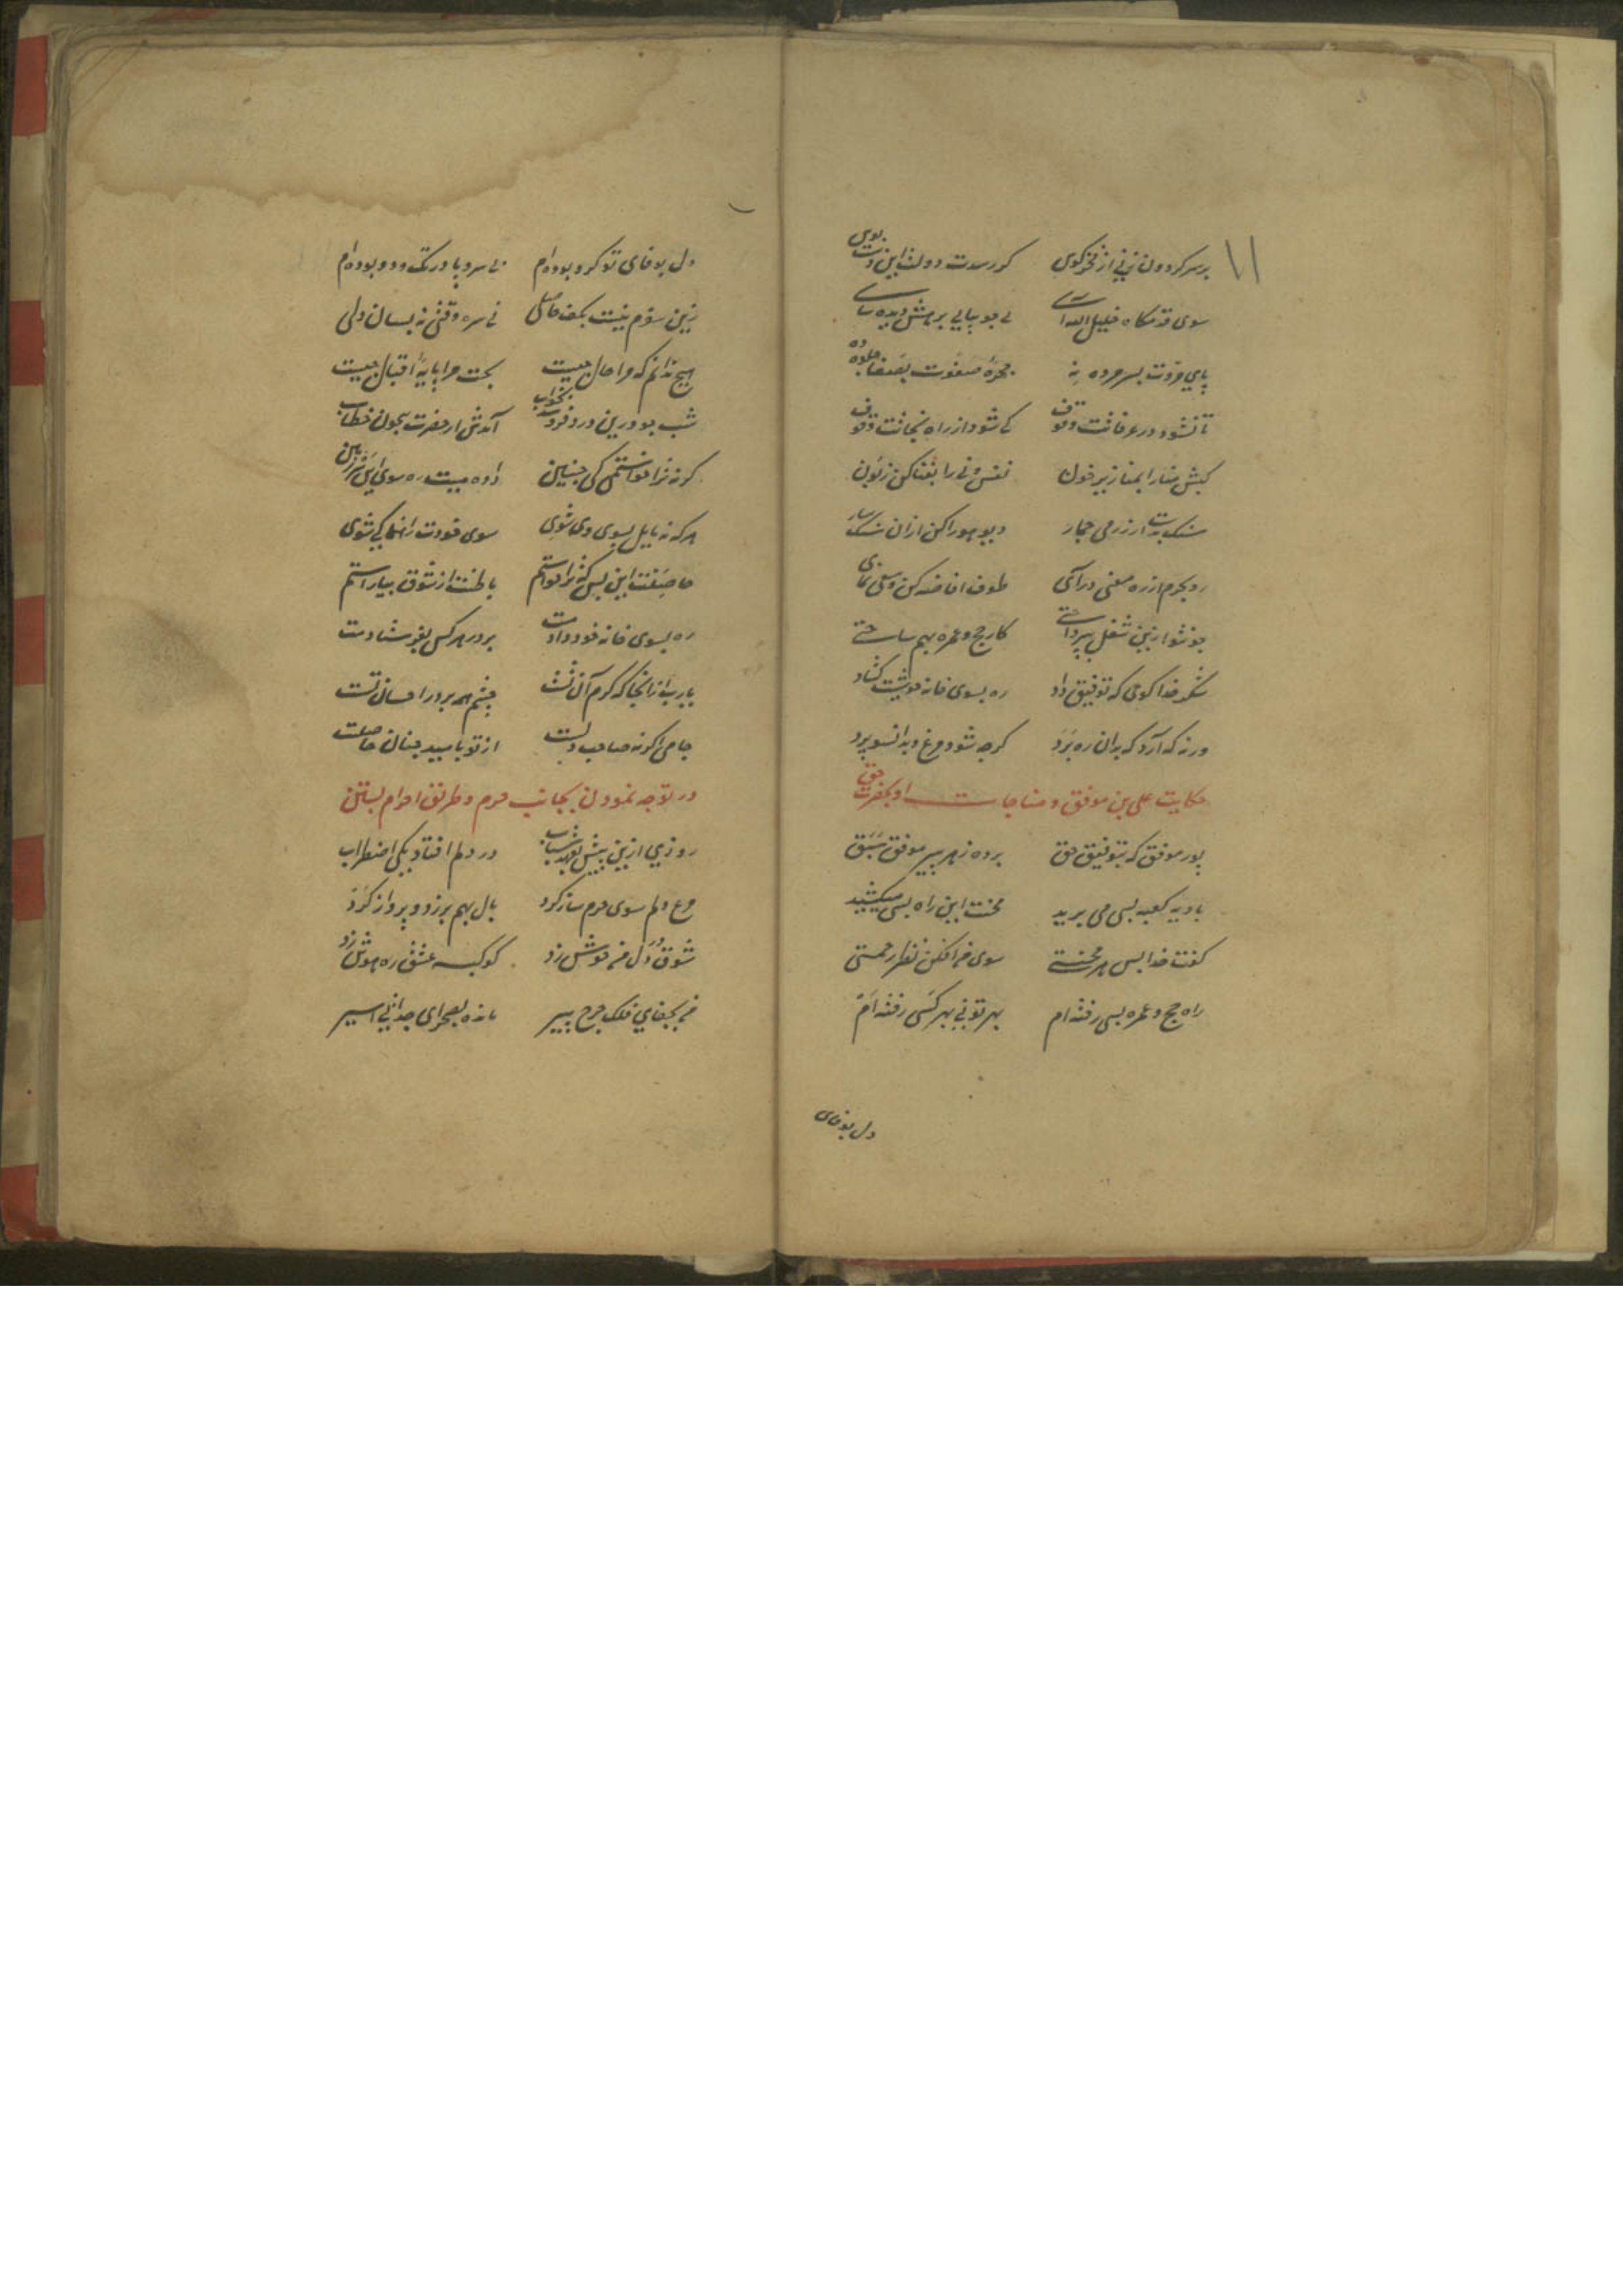 ۱۱
بر سر کردون زنی از فخر کوی کر رسدت دولت این دست بوس
سوی قدمکاه خلیل الله آی پی جو بیابی برهش دیده سای
پای مروت بسر مروه نه چهرهٔ صفوت بصفا جلوه ده
تا نشود در عرفاتت وقوف کی شود از راه نجاتت وقوف
کبش منا را بمنا ریز خون نفس دنی را بفنا کن زبون
سنک بدست آر ز رمی جمار دیو هوا را کن ازان سنکسار
رو بحرم از ره معنی درآی طوف افاضه کن و سعی نمای
چونتو ازین شغل بپرداختی کار حج و عمره بهم ساختی
شکر خدا کوی که توفیق داد ره بسوی خانه خویشت کشاد
ورنه که آرد که بدان ره برد کرچه شود مرغ و بدانسو پرد
حکایت علی بن موفق و مناجات او بحضرت حق
پور موفق که بتوفیق حق برده ز هر پیر موفق سبق
بادیه کعبه بسی می برید محنت این راه بسی میکشید
کفت خدا بس هر محنتی سوی من افکن نظر رحمتی
راه حج و عمره بسی رفته ام بهر تو نی بهر کسی رفته ام
دل بوفای
دل بوفای تو کرو بوده ام بی سر و پا در تک و دو بوده ام
زین سفرم نیست بکف حاصلی نی سره وقتی نه بسامان دلی
هیچ ندانم که مرا حال چیست بخت مرا پایهٔ اقبال چیست
شب چو درین درد فروشد بخواب آمدش از حضرت بیچون خطاب
کر نه ترا خواستمی کی چنین دادمیت ره سوی این سرزمین
هر که نه مایل بسوی وی شوی سوی خودت راهنما کی شوی
حاصلت این بس که ترا خواستم باطنت از شوق بیاراستم
ره بسوی خانه خود دادمت بر در هر کس نفرستادمت
یا رب از انجا که کرم آن تست چشم همه بر در احسان تست
جامی اکر نه صاحب دلست از تو بامید چنان حاصلست
در توجه نمودن بجانب حرم و طریق احرام بستن
روزی ازین پیش بعهد شباب در دلم افتاد یکی اضطراب
مرغ دلم سوی حرم ساز کرد بال بهم بر زد و پرواز کرد
شوق در دل من جوش زد کوکبه عشق ره هوش زد
من بجفای فلک چرخ پیر مانده بصحرای جدائی اسیر